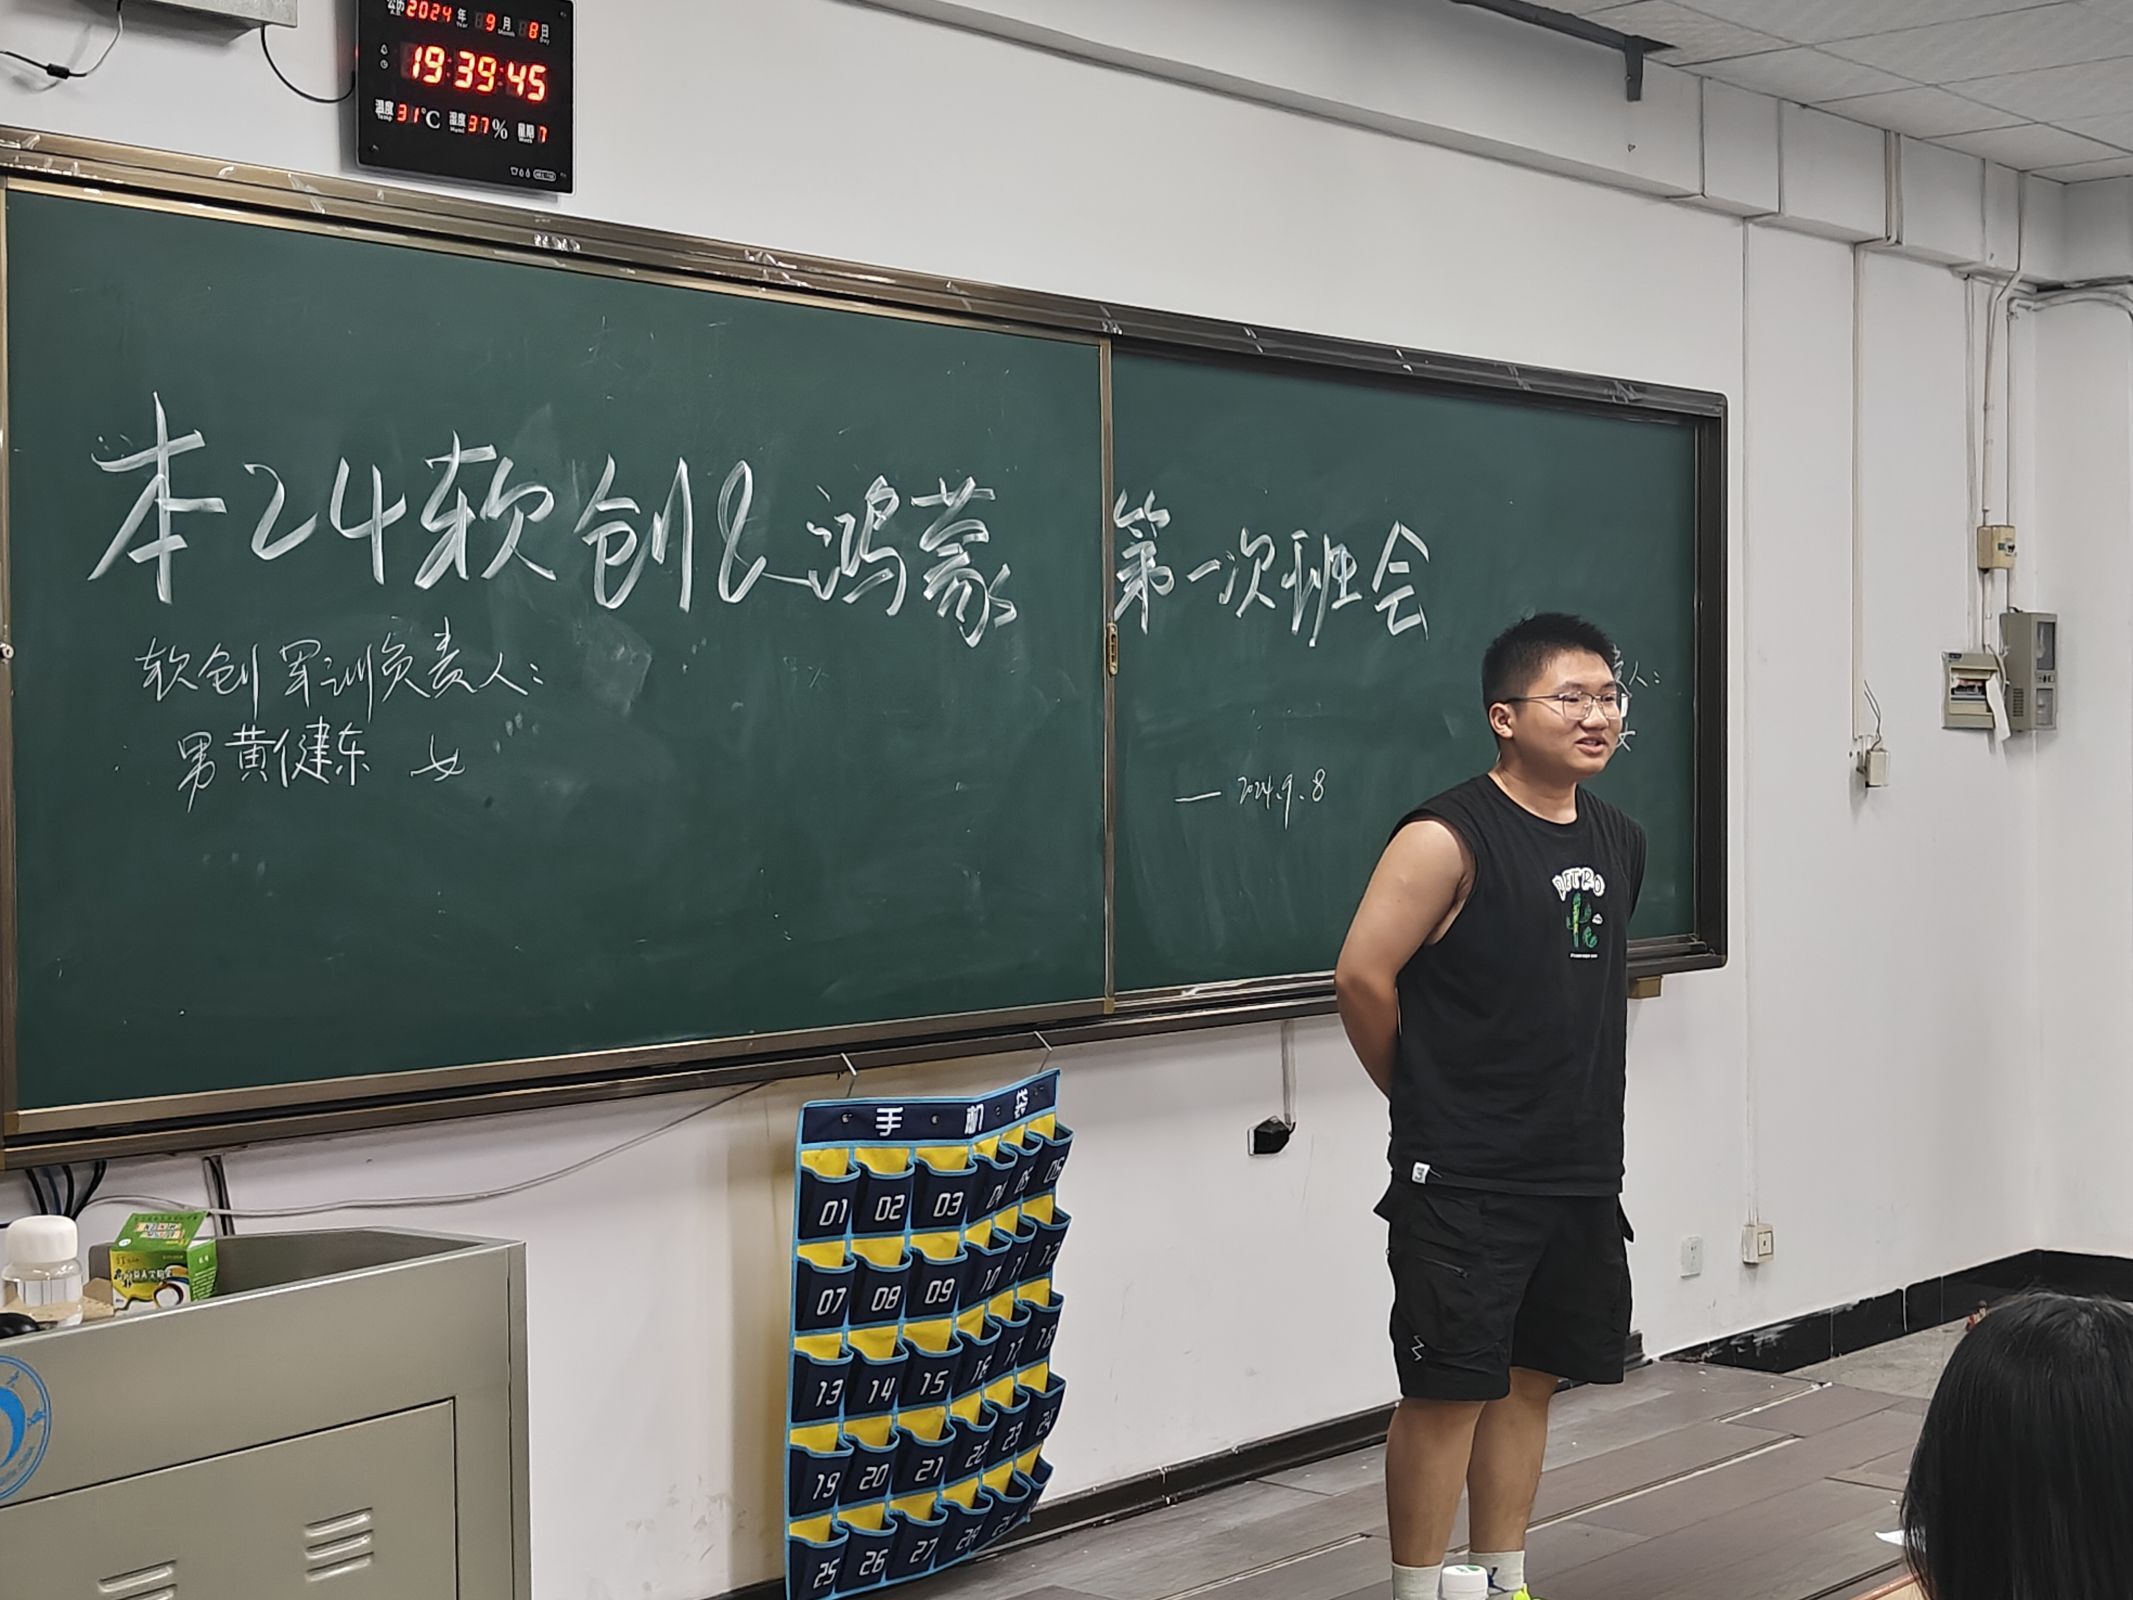 公历 2024 年 9 月 8 日
19:39:45
温度 31℃ 湿度 37% 星期 7
本24软创&鸿蒙 第一次班会
软创军训负责人：
男黄健东 女
人：
女
— 2024.9.8
RETRO
手机袋
01 02 03 04 05 06
07 08 09 10 11 12
13 14 15 16 17 18
19 20 21 22 23 24
25 26 27 28 29